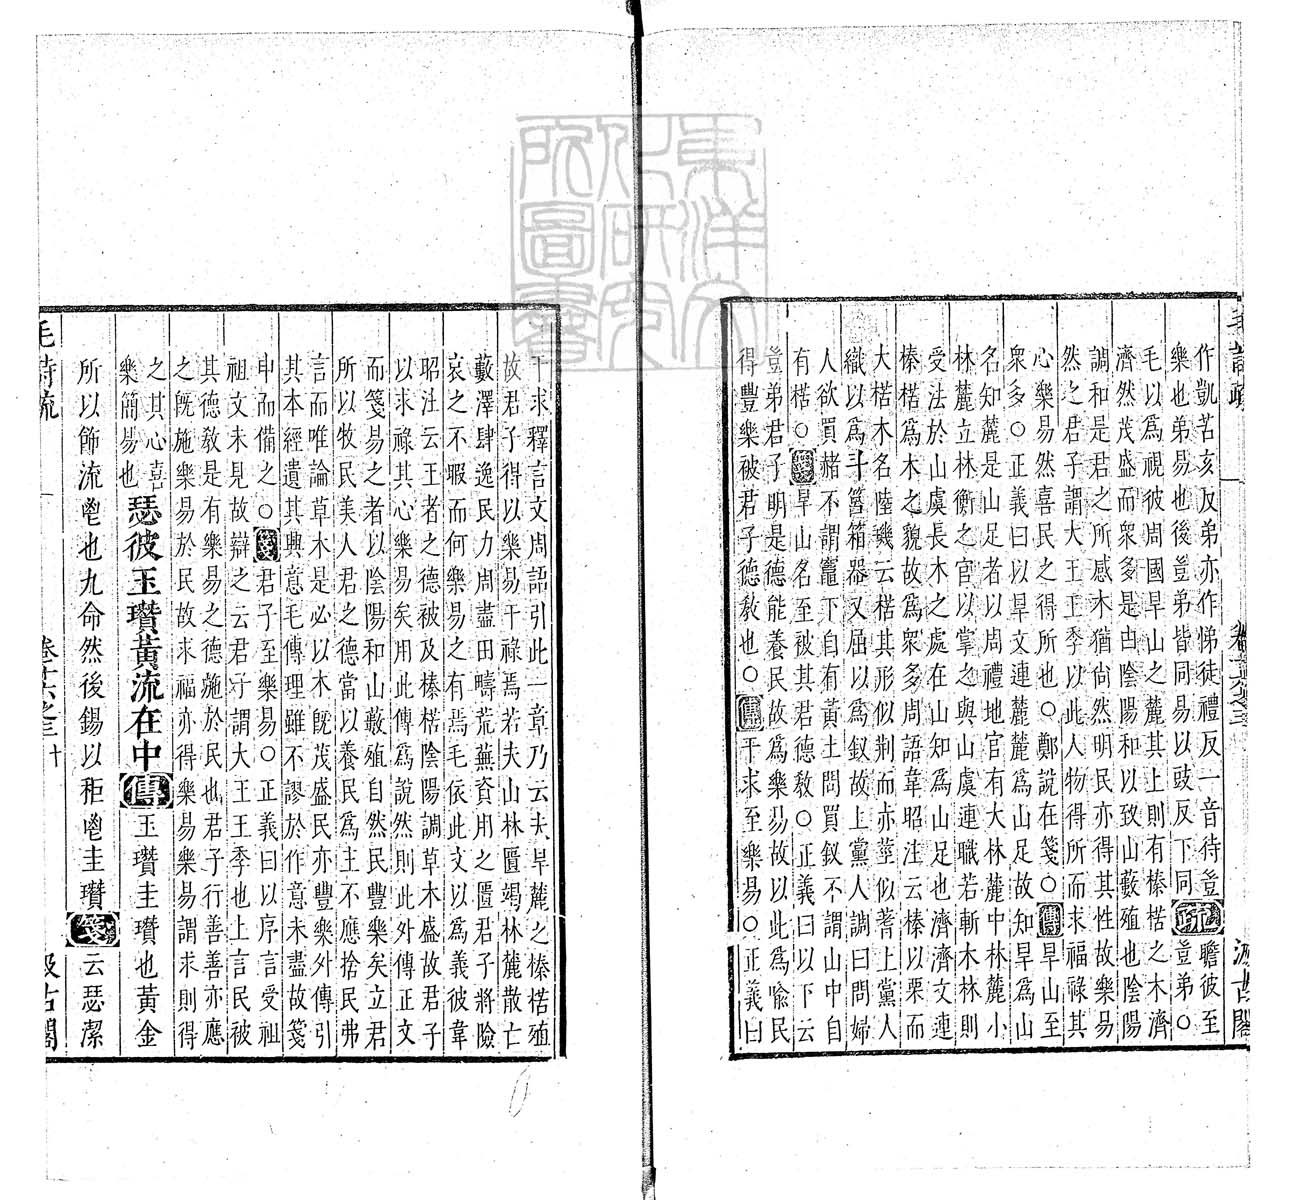 作凱苦亥反弟亦作悌徒禮反一音待豈
樂也弟易也後豈弟皆同易以豉反下同疏瞻彼至豈弟○
毛以爲視彼周國旱山之麓其上則有榛楛之木濟
濟然茂盛而衆多是由陰陽和以致山藪殖也陰陽
調和是君之所感木猶尚然明民亦得其性故樂易
然之君子謂大王王季以此人物得所而求福祿其
心樂易然喜民之得所也○鄭說在箋○傳旱山至
衆多○正義曰以旱文連麓麓爲山足故知旱爲山
名知麓是山足者以周禮地官有大林麓中林麓小
林麓立林衡之官以掌之與山虞連職若斬木林則
受法於山虞長木之處在山知爲山足也濟濟文連
榛楛爲木之貌故爲衆多周語韋昭注云榛以栗而
大楛木名陸機云楛其形似荆而赤莖似蓍上黨人
織以爲斗筥箱器又屈以爲釵故上黨人調曰問婦
人欲買赭不謂竈下自有黃土問買釵不謂山中自
有楛○箋旱山名至被其君德教○正義曰以下云
豈弟君子明是德能養民故爲樂易故以此爲喻民
得豐樂被君子德教也○傳干求至樂易○正義曰
毛詩疏
汲古閣
干求釋言文周語引此一章乃云夫旱麓之榛楛殖
故君子得以樂易干祿焉若夫山林匱竭林麓散亡
藪澤肆逸民力周盡田疇荒蕪資用之匱君子將險
哀之不暇而何樂易之有焉毛依此文以爲義彼韋
昭注云王者之德被及榛楛陰陽調草木盛故君子
以求祿其心樂易矣用此傳爲說然則此外傳正文
而箋易之者以陰陽和山藪殖自然民豐樂矣立君
所以牧民美人君之德當以養民爲主不應捨民弗
言而唯論草木是必以木旣茂盛民亦豐樂外傳引
其本經遺其興意毛傳理雖不謬於作意未盡故箋
申而備之○箋君子至樂易○正義曰以序言受祖
祖文未見故辯之云君子謂大王王季也上言民被
其德教是有樂易之德施於民也君子行善善亦應
之旣施樂易於民故求福亦得樂易樂易謂求則得
之其心喜
樂簡易也瑟彼玉瓚黃流在中傳玉瓚圭瓚也黃金
所以飾流鬯也九命然後錫以秬鬯圭瓚箋云瑟潔
毛詩疏
卷十六之三
十
汲古閣